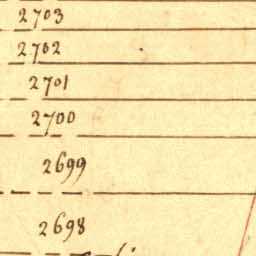 2703
2702
2701
2700
2699
2698